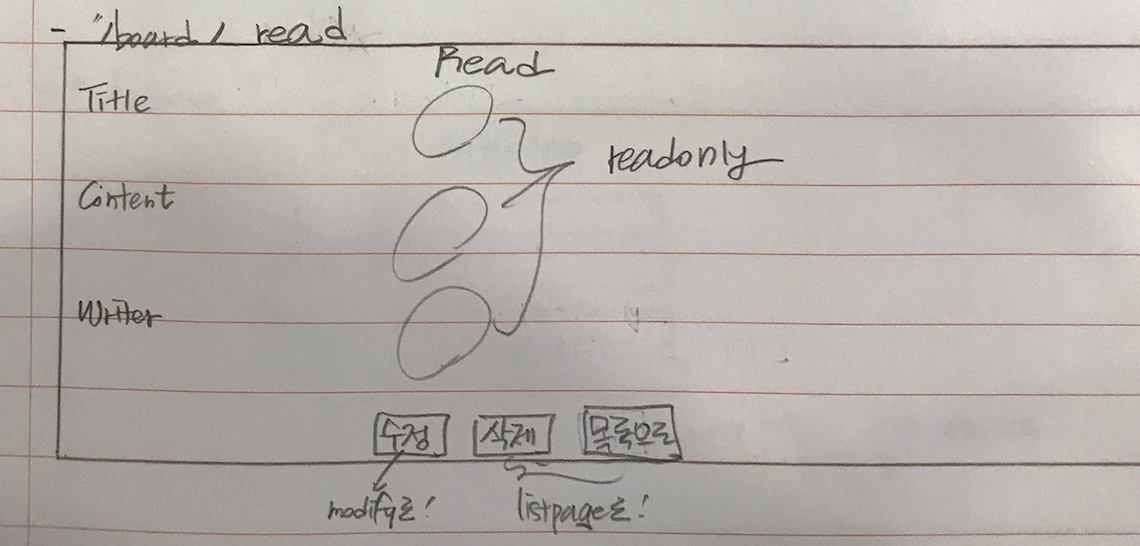 - "/board/ read
Read
Title
readonly
Content
Writer
수정 삭제 목록으로
modify로! listpage로!